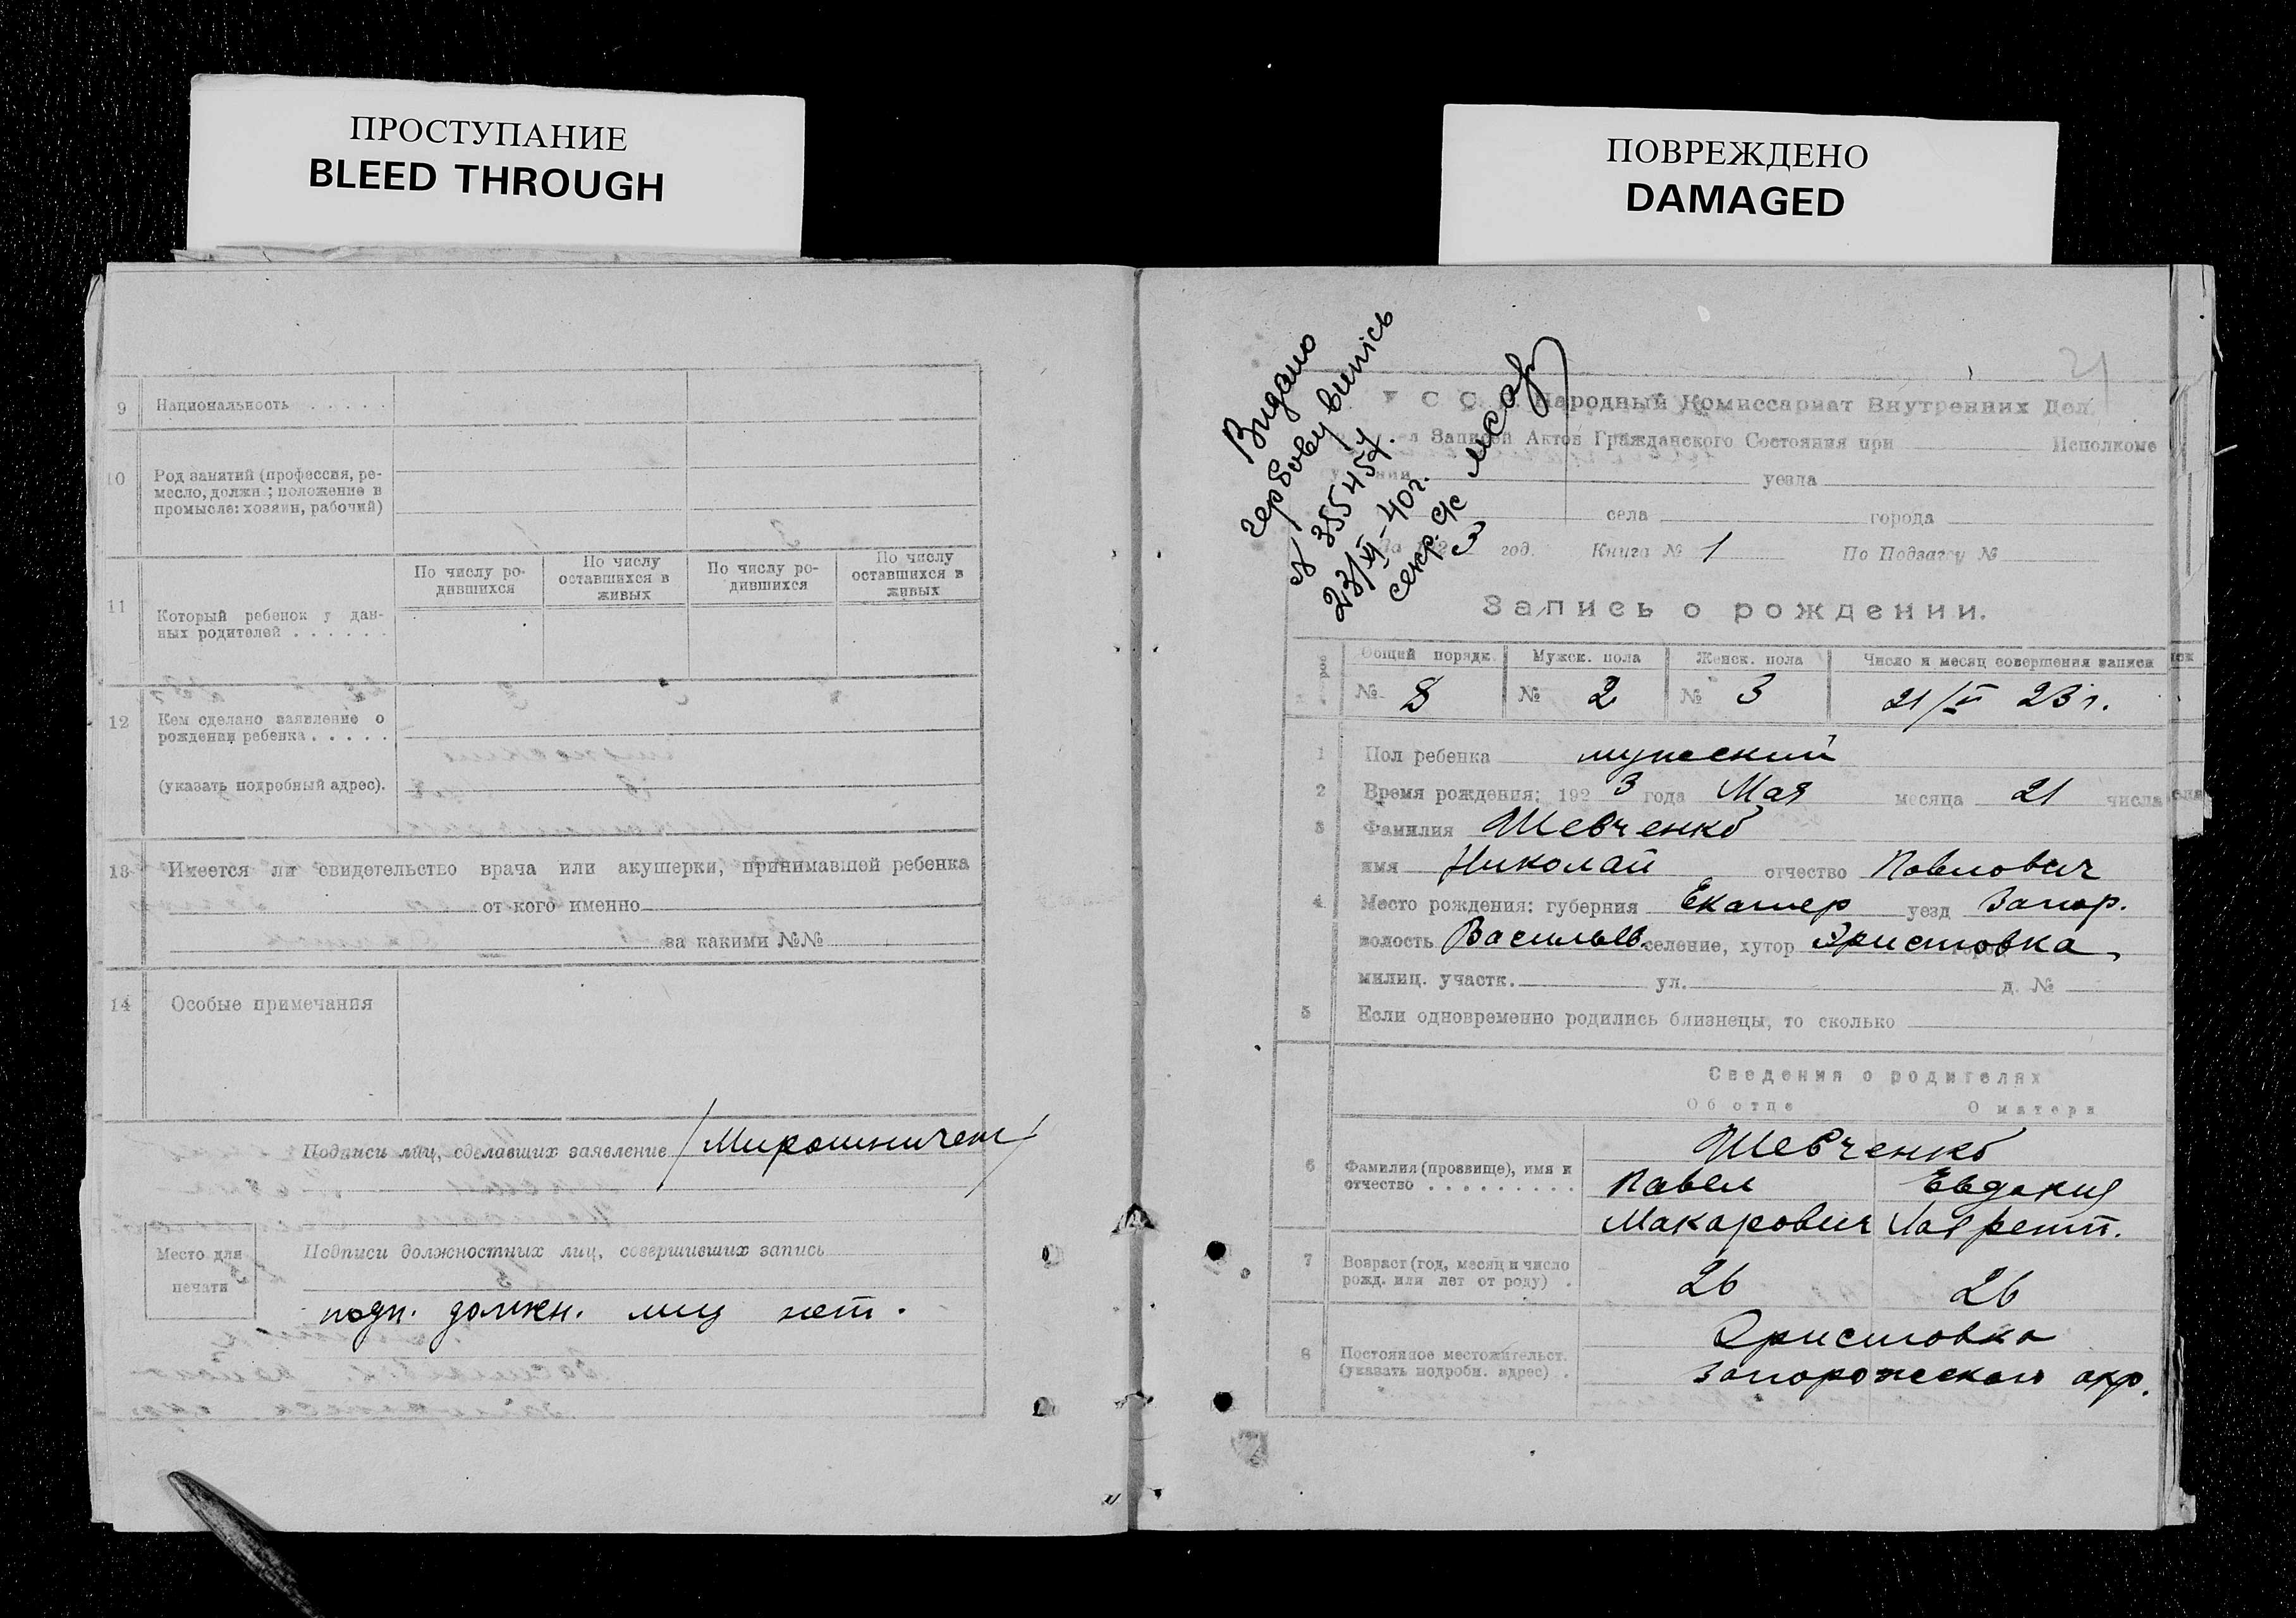 ПРОСТУПАНИЕ
BLEED THROUGH
9 Национальность . . . . .
10 Род занятий (профессия, ре-
месло, должн.; положение в
промысле: хозяин, рабочий)
11 Который ребенок у дан-
ных родителей . . . . . .
По числу ро-
дившихся
По числу
оставшихся в
живых
По числу ро-
дившихся
По числу
оставшихся в
живых
12 Кем сделано заявление о
рождении ребенка . . . . .
(указать подробный адрес).
13 Имеется ли свидетельство врача или акушерки, принимавшей ребенка
от кого именно
за какими №№
14 Особые примечания
Подписи лиц, сделавших заявление /Мирошничен/
Место для
печати
Подписи должностных лиц, совершивших запись
подп. должн. лиц нет.
ПОВРЕЖДЕНО
DAMAGED
21
Видано
гербову випісь
355454
23/VI-40г.
секр. с/с
УССР. Народный Комиссариат Внутренних Дел.
Записей Актов Гражданского Состояния при Исполкоме
уезда
села города
3 год. Книга № 1 По Подзагсу №
Запись о рождении.
Общий порядк. Мужск. пола Женск. пола Число и месяц совершения записи
№ 8 № 2 № 3 21/V 23 г.
1 Пол ребенка мужеский
2 Время рождения; 1923 года Мая месяца 21 числа
3 Фамилия Шевченко
имя Николай отчество Павлович
4 Место рождения: губерния Екатер уезд Запор.
волость Васильев. селение, хутор Эристовка,
милиц. участк. ул. д. №
5 Если одновременно родились близнецы, то сколько
Сведения о родителях
Об отце О матери
6 Фамилия (прозвище), имя и
отчество . . . . . . . . .
Шевченко
Павел Евдокия
Макарович Лаврент.
7 Возраст (год, месяц и число
рожд. или лет от роду) .
26 26
8 Постоянное местожительст.
(указать подробн. адрес) .
Эристовка
Запорожского окр.